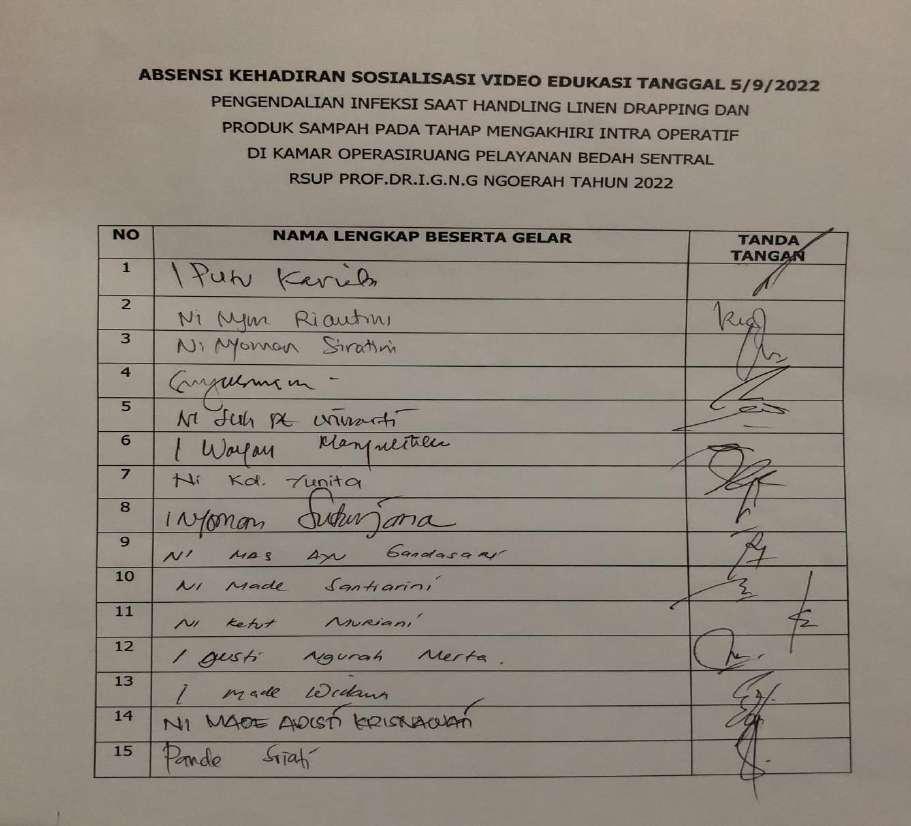 ABSENSI KEHADIRAN SOSIALISASI VIDEO EDUKASI TANGGAL 5/9/2022
PENGENDALIAN INFEKSI SAAT HANDLING LINEN DRAPPING DAN
PRODUK SAMPAH PADA TAHAP MENGAKHIRI INTRA OPERATIF
DI KAMAR OPERASIRUANG PELAYANAN BEDAH SENTRAL
RSUP PROF.DR.I.G.N.G NGOERAH TAHUN 2022
NO NAMA LENGKAP BESERTA GELAR TANDA TANGAN
1 I Putu
2 Ni Nym Riautini
3 Ni Nyoman Siratini
4
5 Ni Luh Pt Wiwarti
6 I Wayan
7 Ni Kd. Yunita
8 I Nyoman Sukarjana
9 Ni Mas Ayu Gandasari
10 Ni Made Santiarini
11 Ni Ketut Muriani
12 I Gusti Ngurah Merta.
13 I Made Widana
14 NI MADE ADISTI KRISNAWATI
15 Pande Sriati